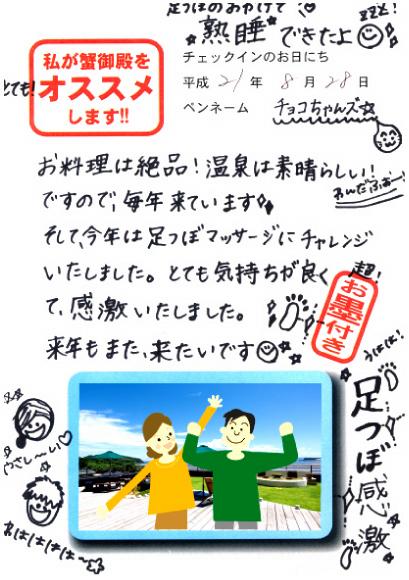 足つぼのおかげで
zzz!
熟睡できたよ
私が蟹御殿を
とても!
オススメ
します!!
チェックインのお日にち
平成 21 年 8 月 28 日
ペンネーム チョコちゃんズ☆
お料理は絶品!温泉は素晴らしい!
ですので、毎年来ています
わんだふぉー
そして、今年は足つぼマッサージにチャレンジ
いたしました。とても気持ちが良く
超!
て、感激いたしました。
お墨付き
来年もまた、来たいです
うほほ!
足つぼ感激
やさし〜い♡
おほほほほ〜